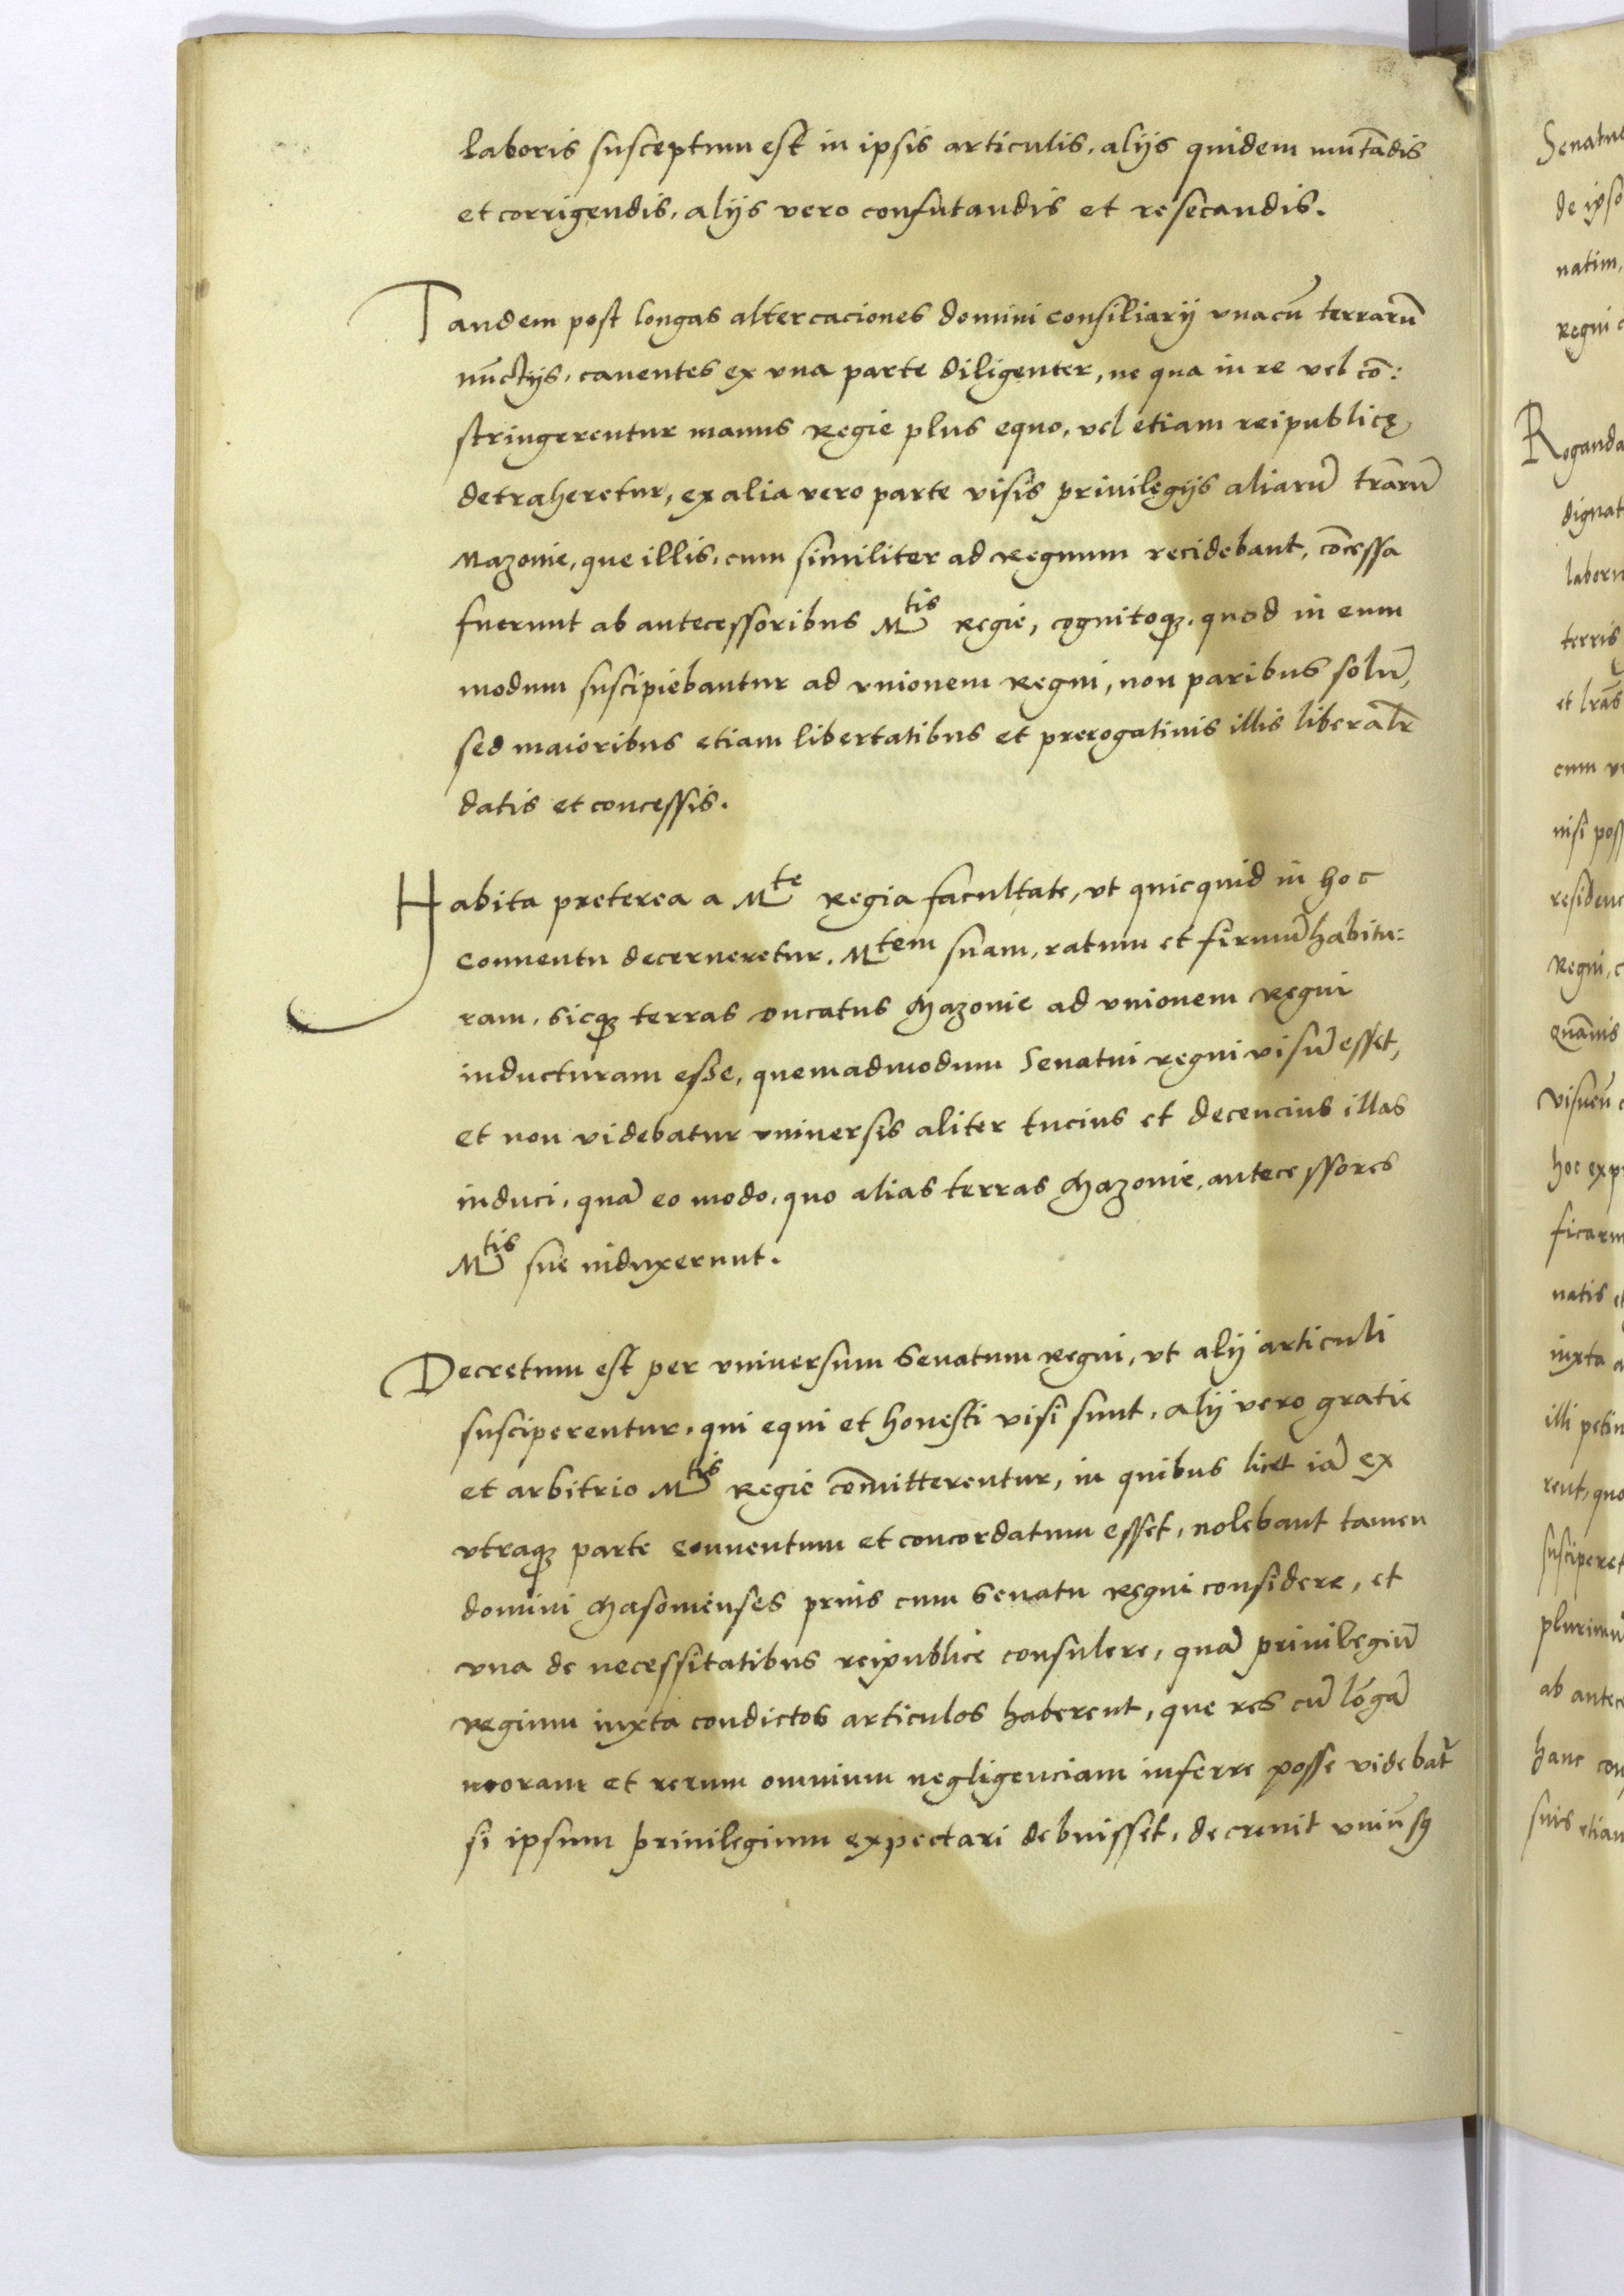 laboris susceptum est in ipsis articulis, alijs quidem mutādis
et corrigendis, alijs vero confutandis et resecandis.
Tandem post longas altercaciones domini consiliarij vnacū terrarū
nūctijs, cauentes ex vna parte diligenter, ne qua in re vel cō:
stringerentur manus Regie plus equo, vel etiam reipublicę
detraheretur, ex alia vero parte visis priuilegijs aliarū trarū
Mazouie, que illis, cum similiter ad Regnum recidebant, cōcessa
fuerunt ab antecessoribus Mtis Regie, cognitoqꝫ, quod in eum
modum suscipiebantur ad vnionem Regni, non paribus solū,
sed maioribus etiam libertatibus et prerogatiuis illis liberalr̄
datis et concessis.
Habita preterea a Mte Regia facultate, vt quicquid in hoc
conuentu decerneretur, Mtem suam, ratum et firmū habitu:
ram, sicqꝫ terras Ducatus Mazouie ad vnionem Regni
inducturam esse, quemadmodum Senatui regni visū esset,
et non videbatur vniuersis aliter tucius et decencius illas
induci, quā eo modo, quo alias terras Mazouie, antecessores
Mtis sue induxerunt.
Decretum est per vniuersum Senatum Regni, vt alij articuli
susciperentur, qui equi et honesti visi sunt, alij vero gratie
et arbitrio Mtis Regie cōmitterentur, in quibus licet iā ex
vtraqꝫ parte conuentum et concordatum esset, nolebant tamen
domini Masouienses prius cum Senatu Regni considere, et
vna de necessitatibus reipublice consulere, quā priuilegiū
regium iuxta condictos articulos haberent, que res cū lōgā
moram et rerum omnium negligenciam inferre posse videbat̄
si ipsum priuilegium expectari debuisset, decreuit vniūsꝯ
Senatus
de ipso
natim,
Regni
Roganda
dignat
labor
terris
et lrās
cum
nisi poss
residen
Regni,
quāuis
hoc exp
natis
iuxta
illi petiu
rent, quo
susciperet
plurimū
ab antece
hanc con
suis etiam